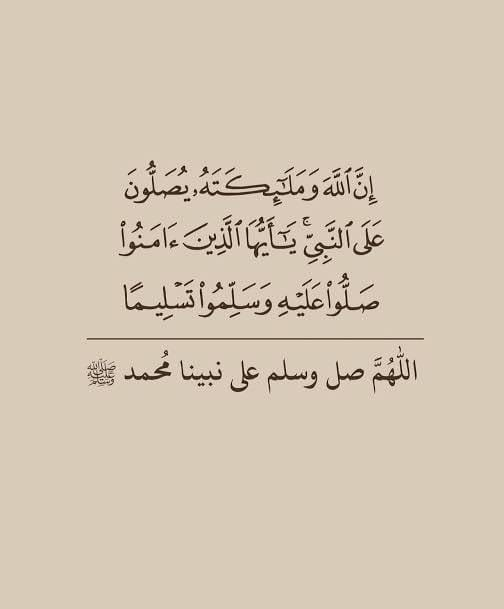 إِنَّ ٱللَّهَ وَمَلَٰٓئِكَتَهُۥ يُصَلُّونَ
عَلَى ٱلنَّبِيِّۚ يَٰٓأَيُّهَا ٱلَّذِينَ ءَامَنُوا۟
صَلُّوا۟ عَلَيْهِ وَسَلِّمُوا۟ تَسْلِيمًا
اللّٰهُمَّ صل وسلم على نبينا مُحمد ﷺ